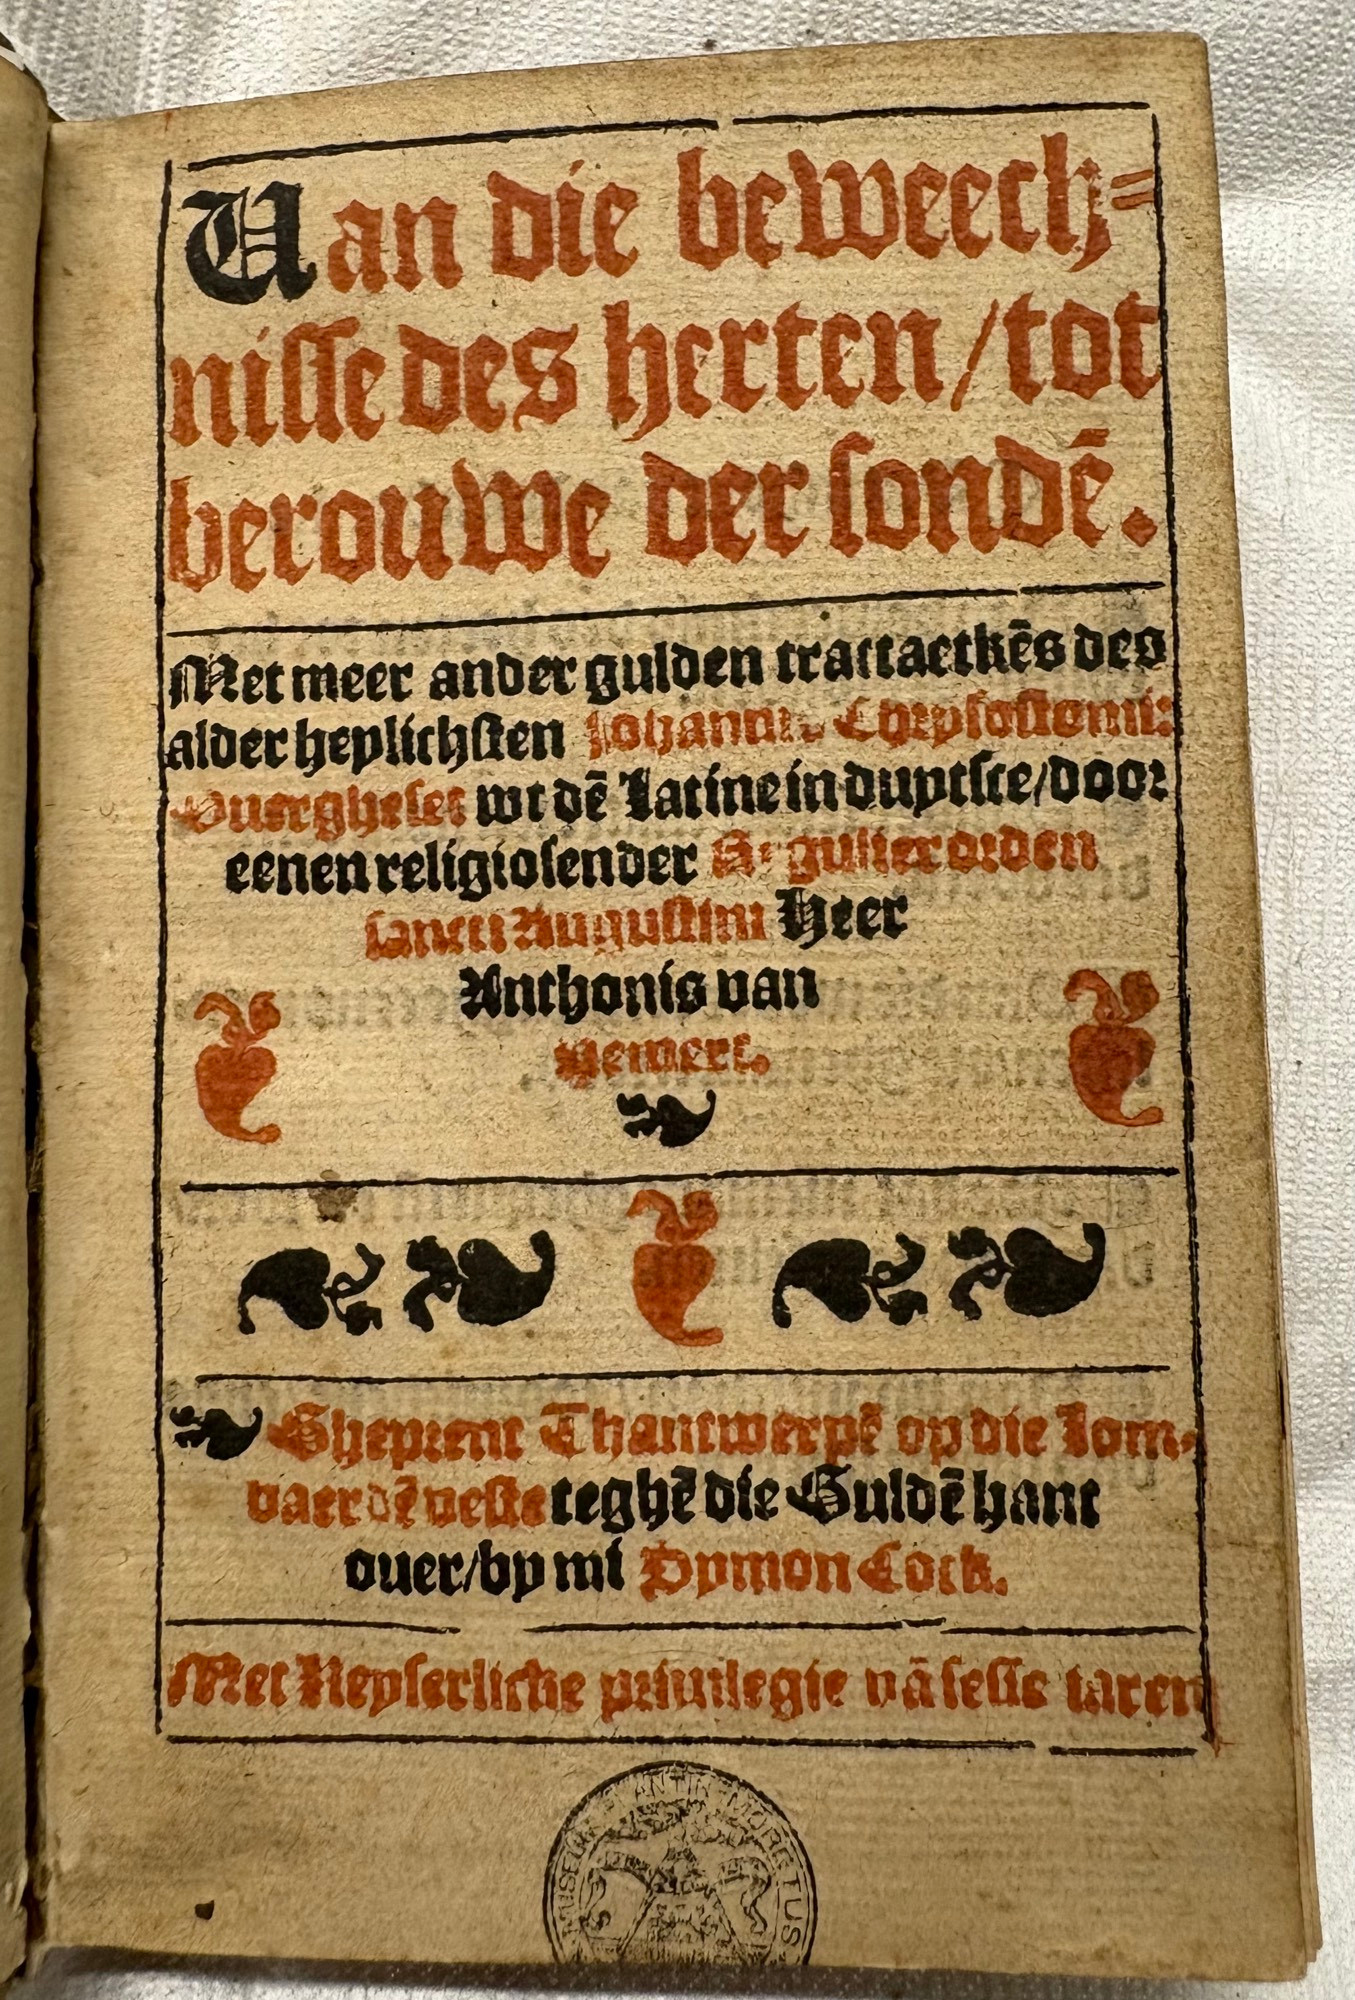 Uan die beweech=
nisse des herten/tot
berouwe der sondē.
Met meer ander gulden tractaetkēs des
alder heylichsten Johannis Chrysostomi:
Ouergheset wt dē Latine in duytsce/door
eenen religiosen der Regulier orden
sancti Augustini Heer
Anthonis van
Hemert.
Gheprent Thantwerpē op die Lom-
vaerdē veste teghē die Guldē hant
ouer/by mi Symon Cock.
Met Keyserlicke priuilegie vā sesse iaren
MUSEUM PLANTIN-MORETUS